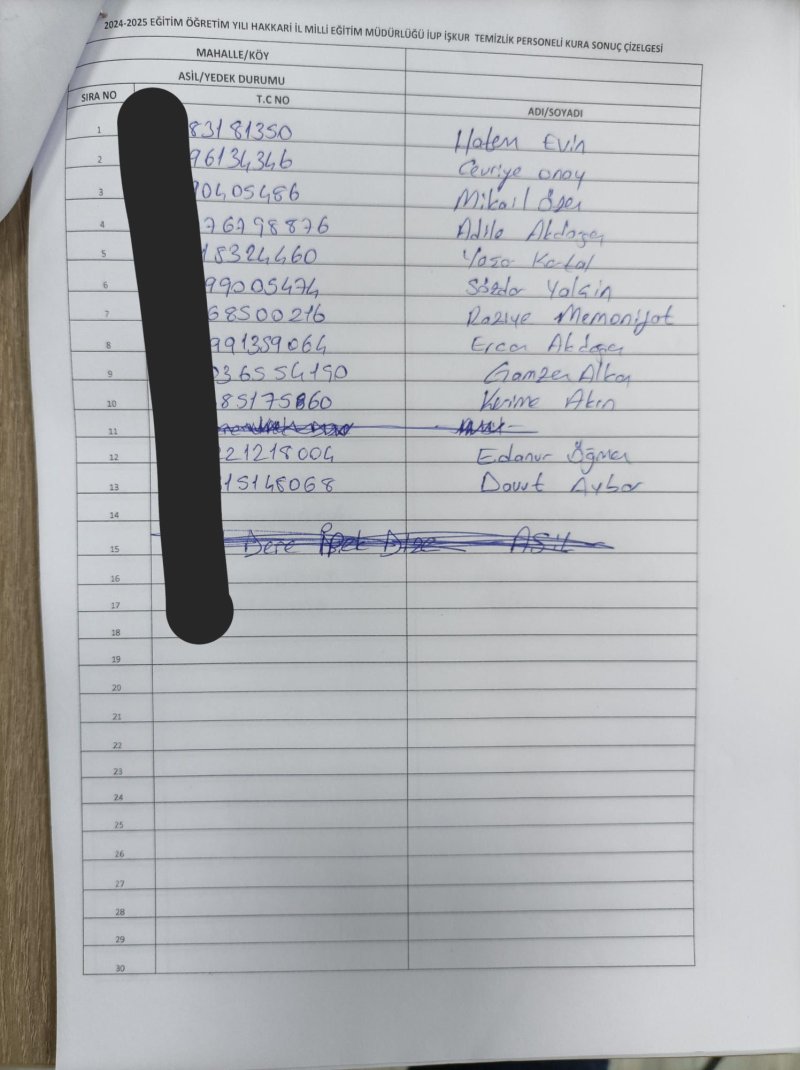 2024-2025 EĞİTİM ÖĞRETİM YILI HAKKARİ İL MİLLİ EĞİTİM MÜDÜRLÜĞÜ İUP İŞKUR TEMİZLİK PERSONELİ KURA SONUÇ ÇİZELGESİ
MAHALLE/KÖY
ASİL/YEDEK DURUMU
SIRA NO T.C NO ADI/SOYADI
1 83181350 Hatem Evin
2 96134346 Cevriye onay
3 70405486 Mikail Özer
4 76798876 Adile Akdoğan
5 18324460 Yaşa
6 99005474 Sözdar Yalçin
7 68500216 Raziye
8 991359064 Ercan Akdoğan
9 036554190 Gamzer Alkan
10 85175860 Kerime Akın
11
12 221218004 Edanur Öğmen
13 315148068 Davut Aybar
14
15 Dere İpek Dize ASİL
16
17
18
19
20
21
22
23
24
25
26
27
28
29
30